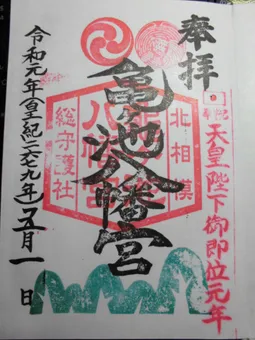 奉拝
天皇陛下御即位元年
北相模
亀ヶ池八幡宮
総守護社
令和元年(皇紀二六七九年)五月一日